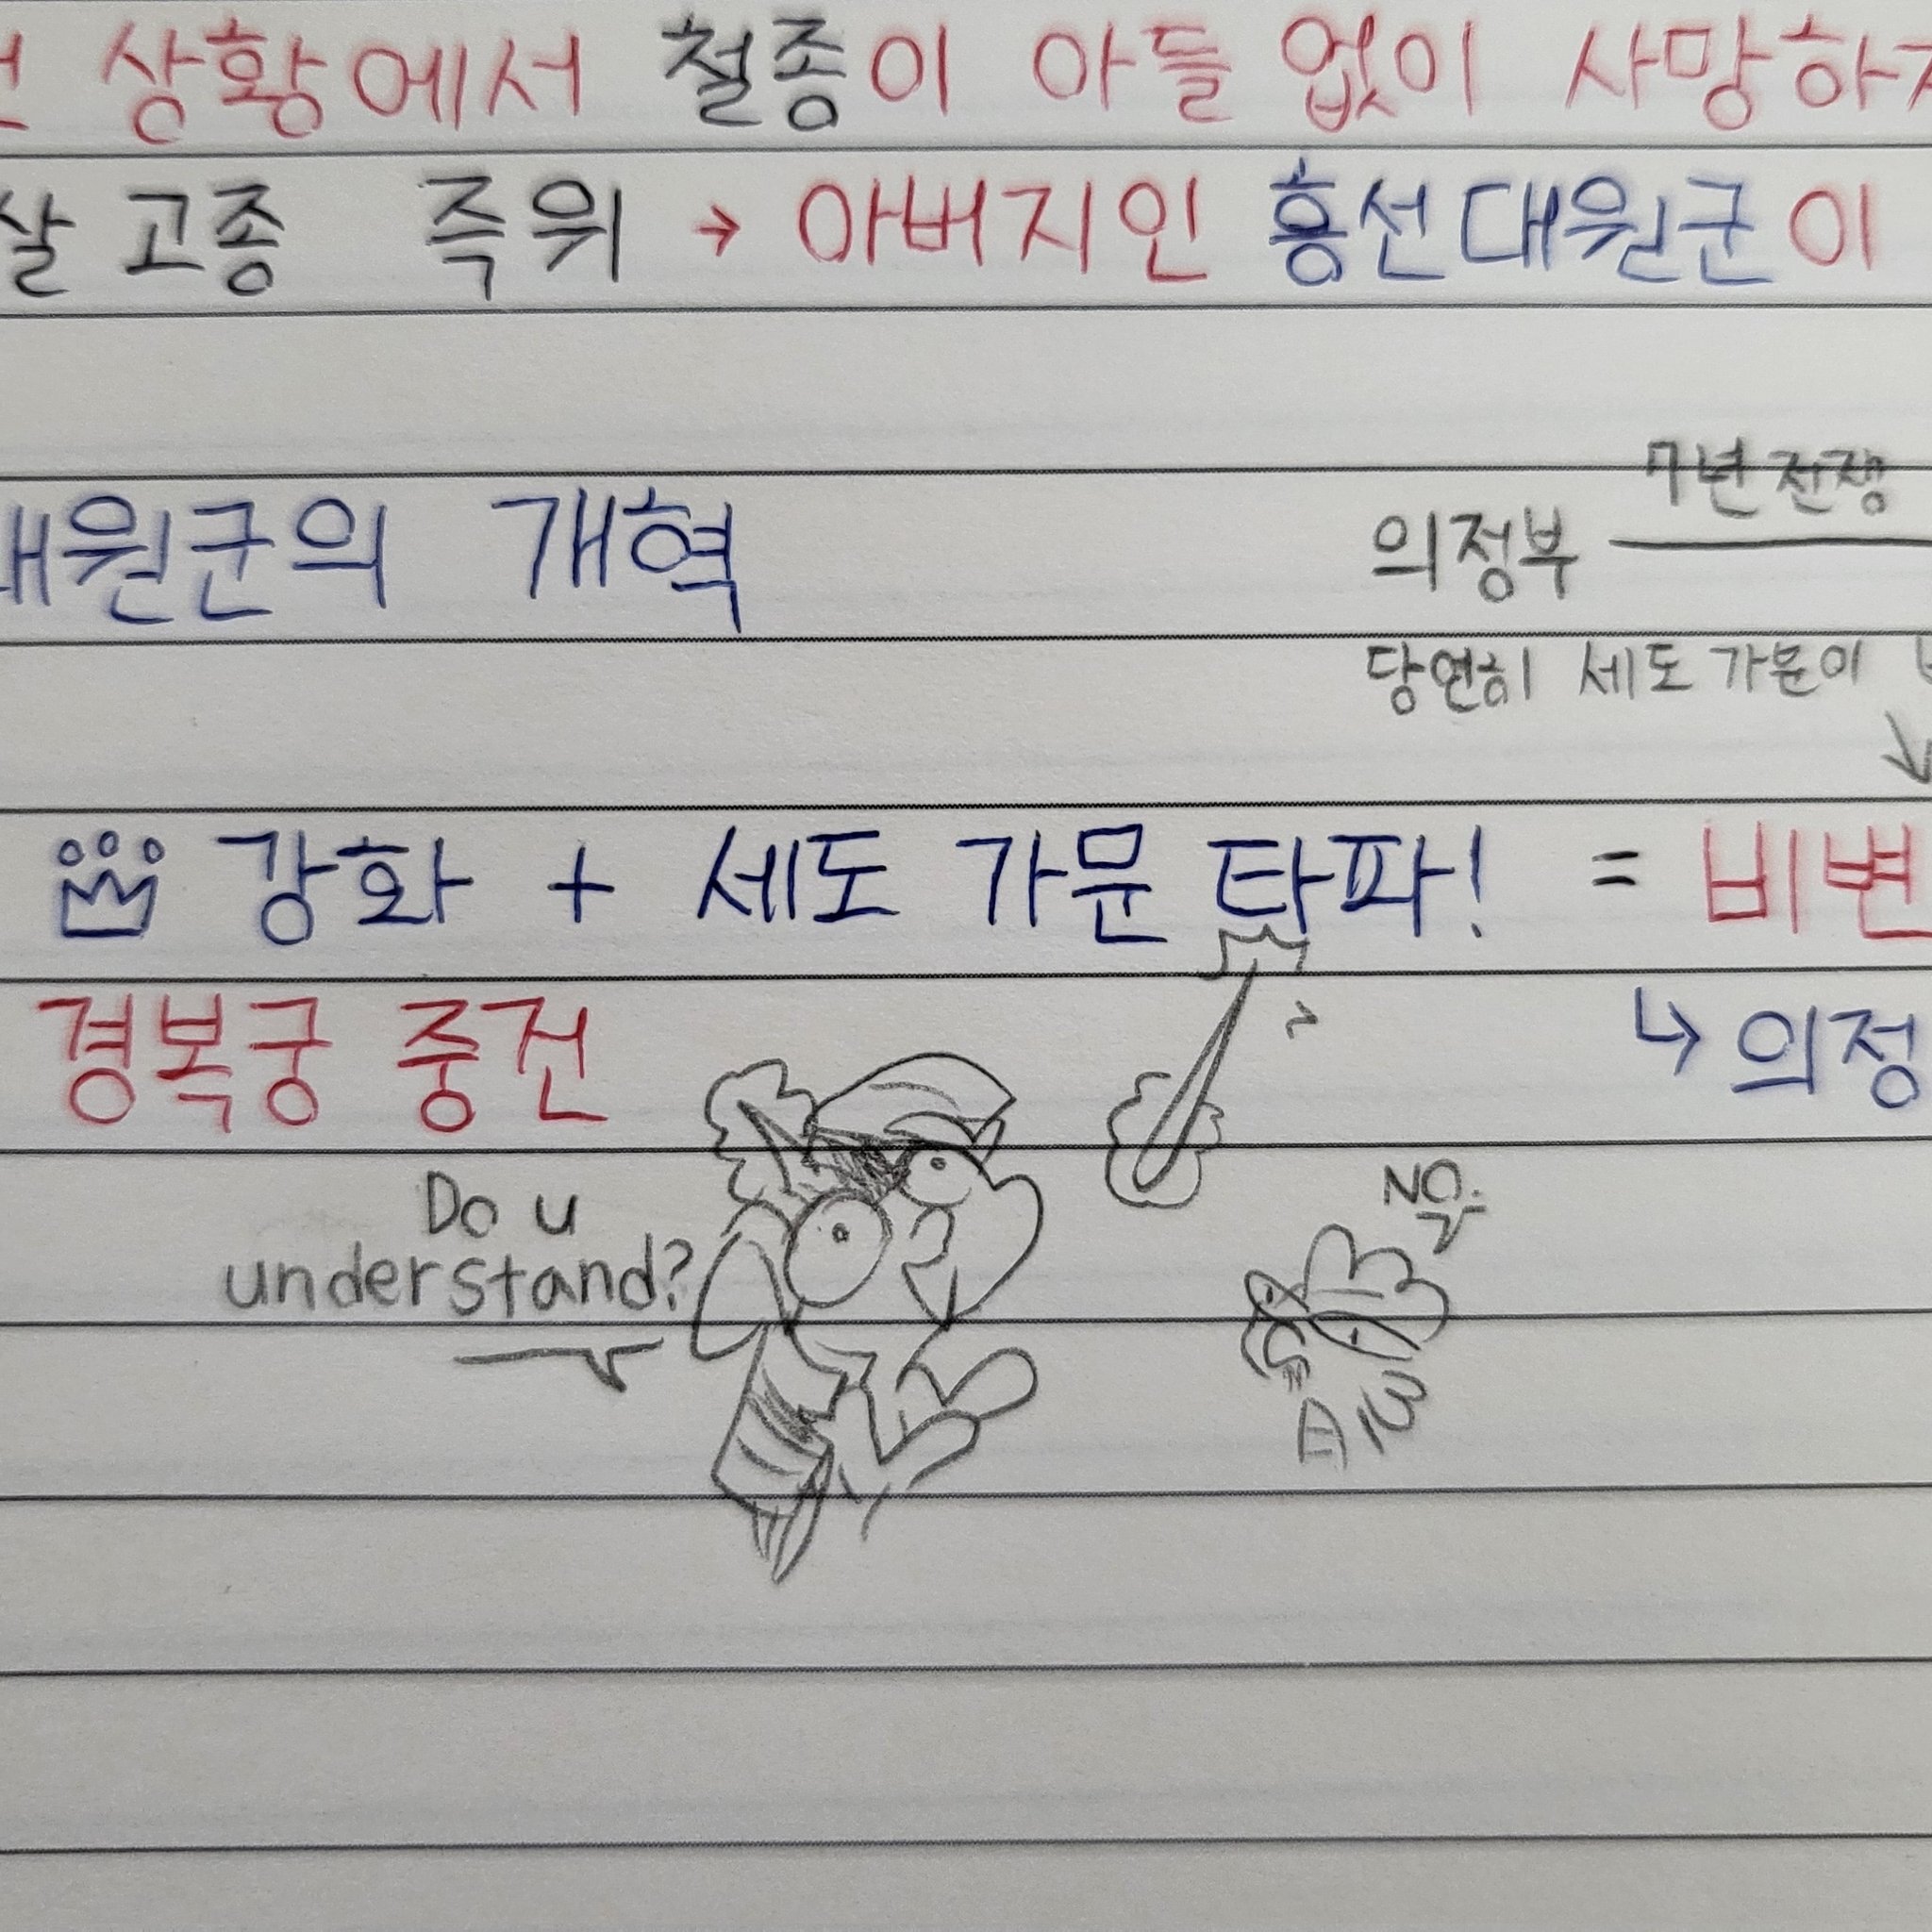 상황에서 철종이 아들 없이 사망하자
살 고종 즉위 → 아버지인 흥선대원군이
7년 전쟁
대원군의 개혁 의정부
당연히 세도 가문이
강화 + 세도 가문 타파! = 비변
경복궁 중건 ↳ 의정
Do u
understand?
NO.